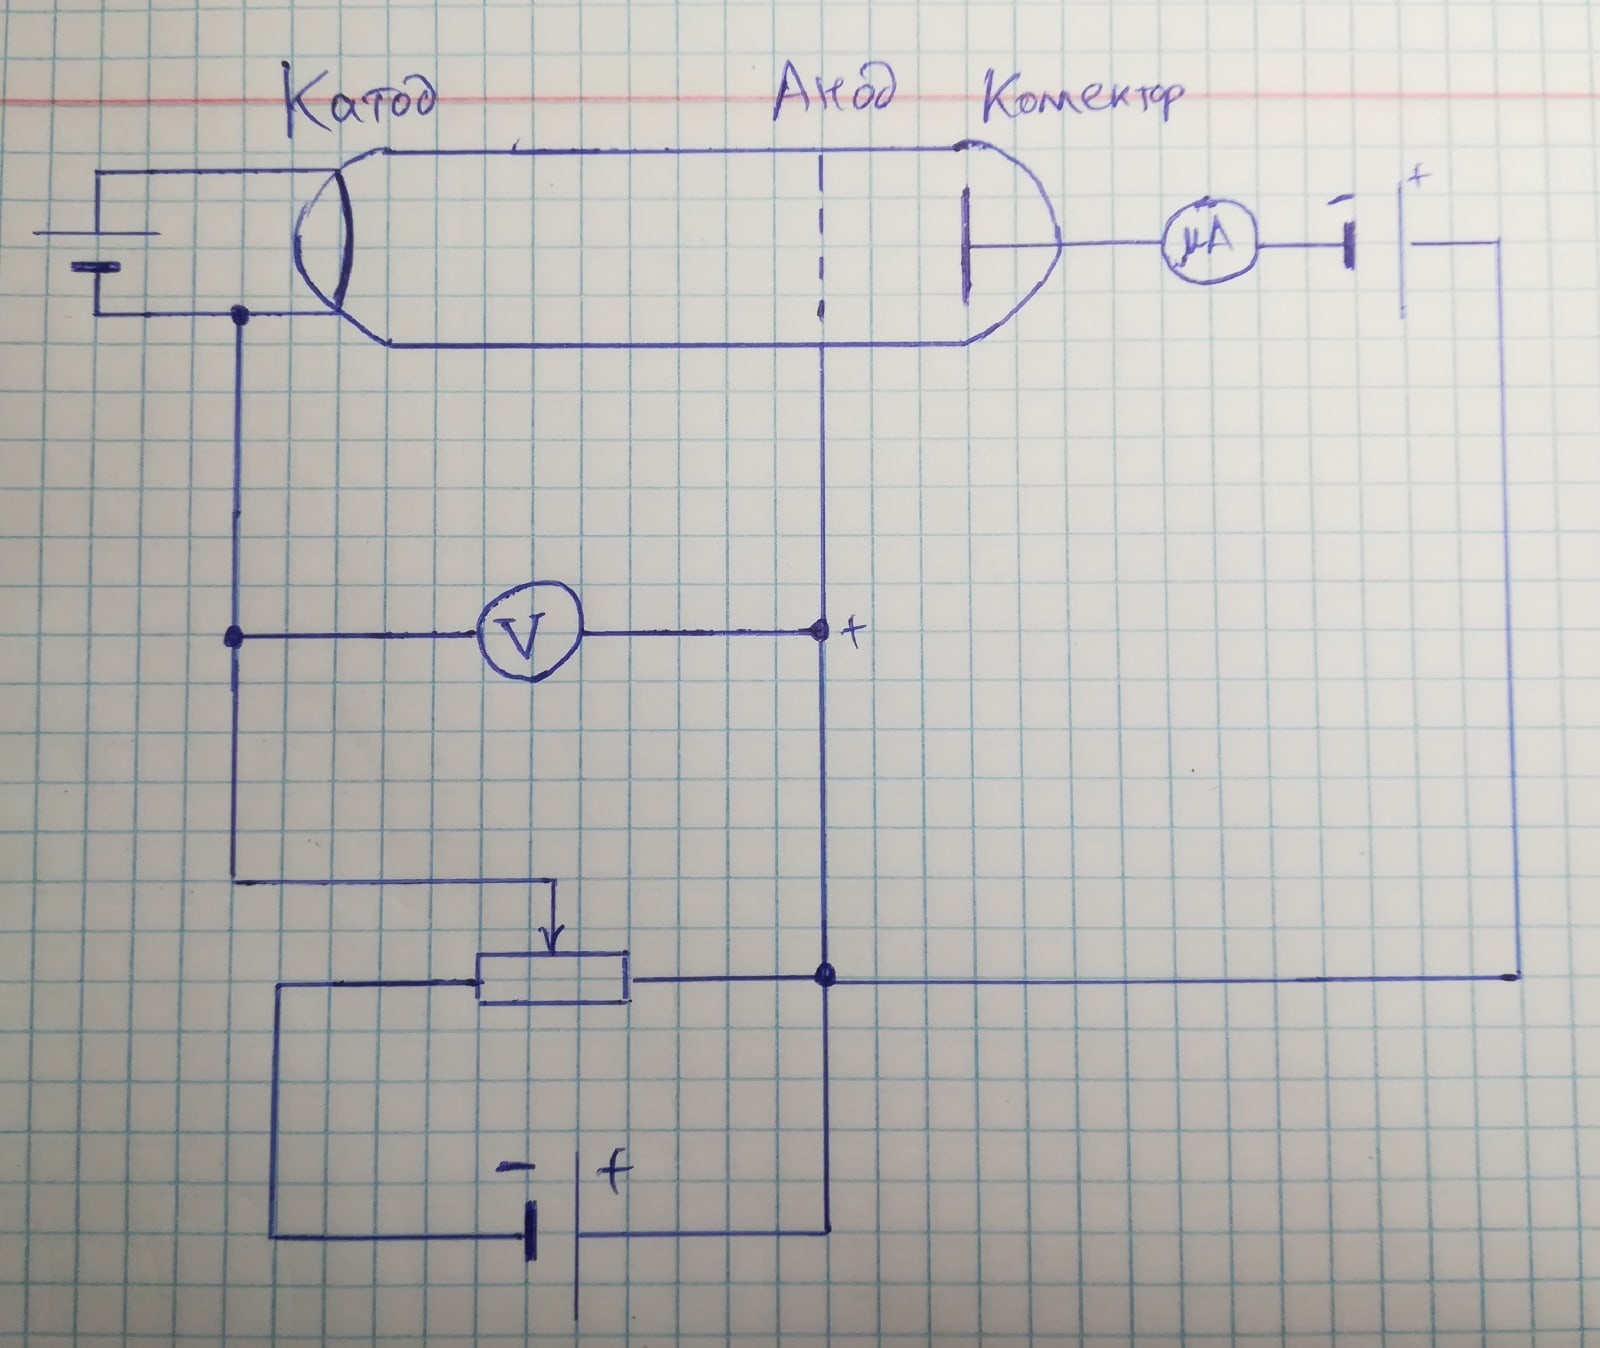 Катод Анод Коллектор
+
-
μA
V
+
- +